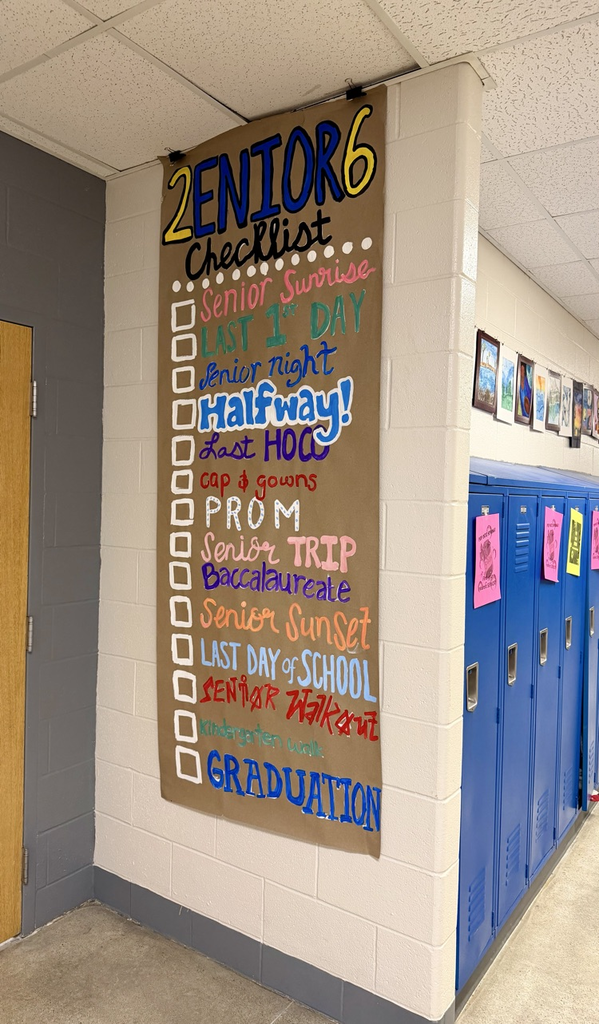 2ENIOR6
Checklist
Senior Sunrise
LAST 1ST DAY
Senior night
Halfway!
Last HOCO
cap & gowns
PROM
Senior TRIP
Baccalaureate
Senior SunSet
LAST DAY of SCHOOL
SENiOR WalkouT
Kindergarten walk
GRADUATION